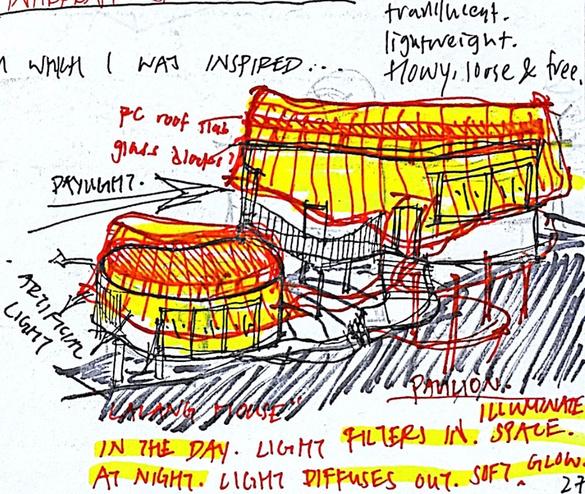 translucent.
lightweight.
flowy, loose & free.
WHICH I WAS INSPIRED....
PC roof slab
glass blocks?
DAYLIGHT.
ARTIFICIAL
LIGHT
PAVILION.
"LALANG HOUSE"
ILLUMINATE
IN THE DAY. LIGHT FILTERS IN. SPACE.
AT NIGHT. LIGHT DIFFUSES OUT. SOFT GLOW.
27